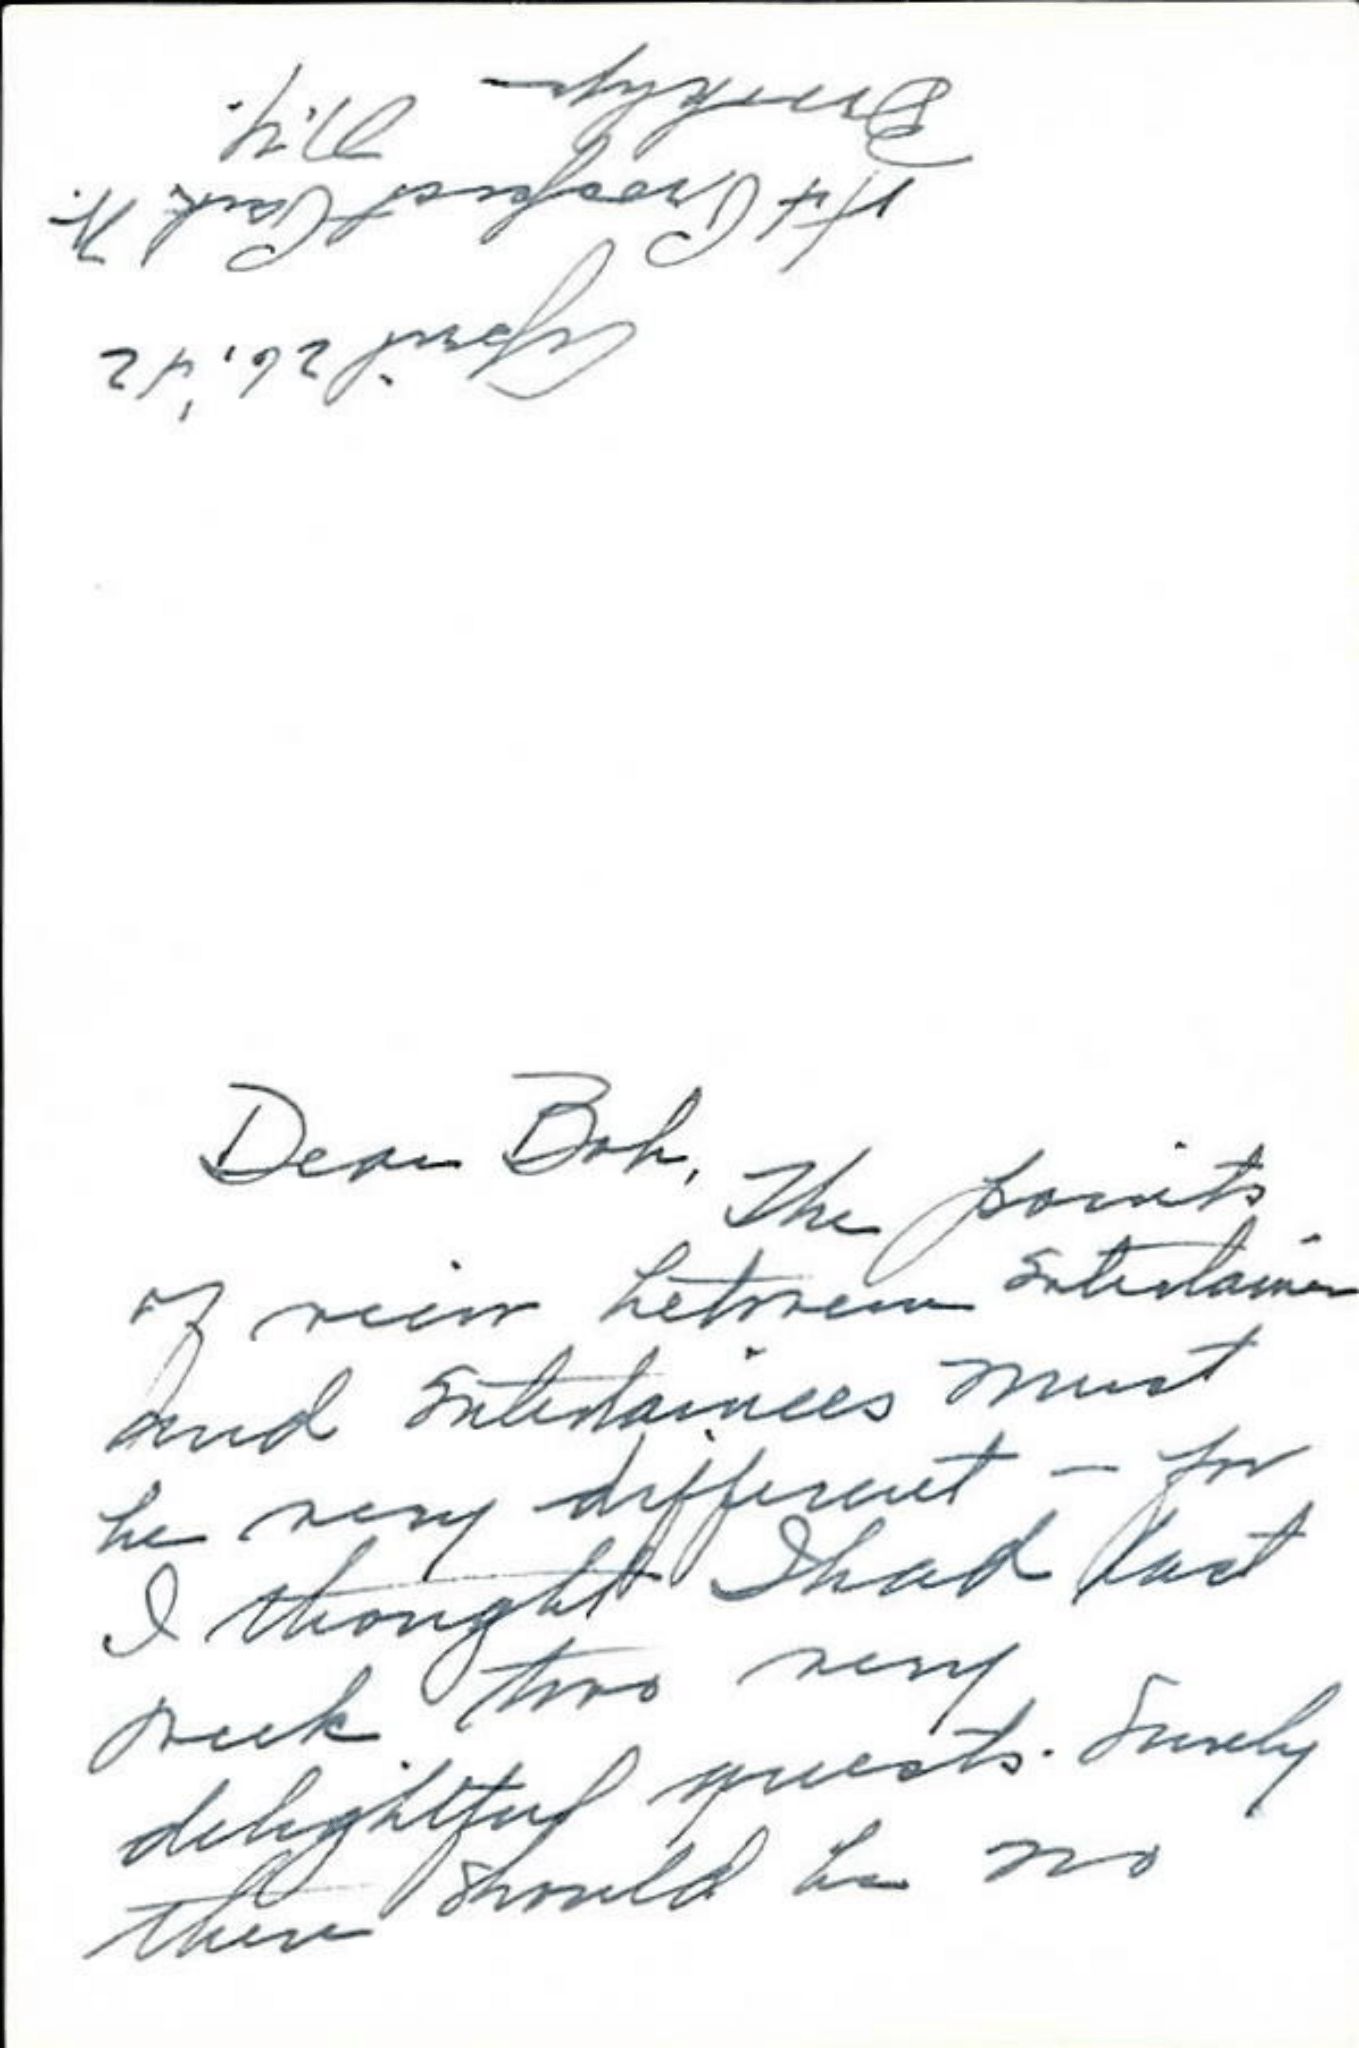 Dear Bob,
The points
of view between Entertainer
and Entertainees must
be very different - for
I thought I had last
week two very
delightful guests. Surely
there should be no
April 26, '42
Prospect Park W.
Brooklyn
N.Y.